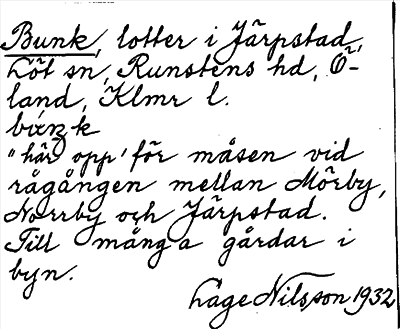 Bunk, lotter i Järpstad,
Löt sn, Runstens hd, Ö-
land, Klmr l.
"här opp' för måsen vid
rågången mellan Mörby,
Norrby och Järpstad.
Till många gårdar i
byn.
Låge Nilsson 1932